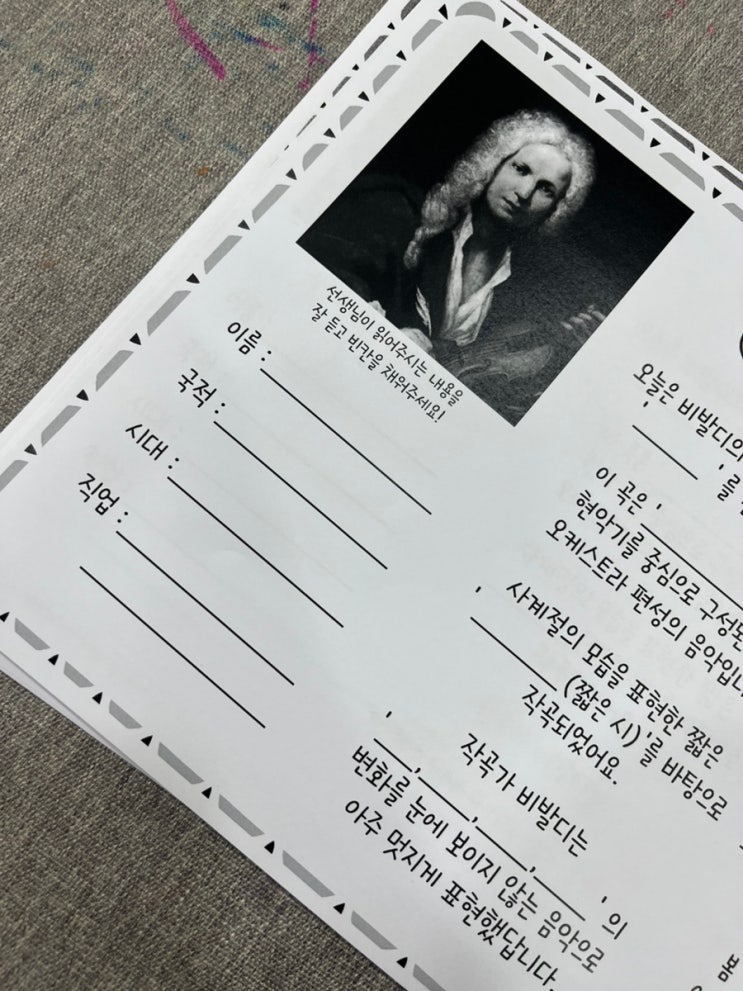 선생님이 읽어주시는 내용을
잘 듣고 빈칸을 채워주세요!
이름 :
국적 :
시대 :
직업 :
오늘은 비발디의
' ', '를
이 곡은 '
현악기를 중심으로 구성된
오케스트라 편성의 음악입니
사계절의 모습을 표현한 짧은
' (짧은 시)'를 바탕으로
작곡되었어요.
작곡가 비발디는
' , , , '의
변화를 눈에 보이지 않는 음악으로
아주 멋지게 표현했답니다.